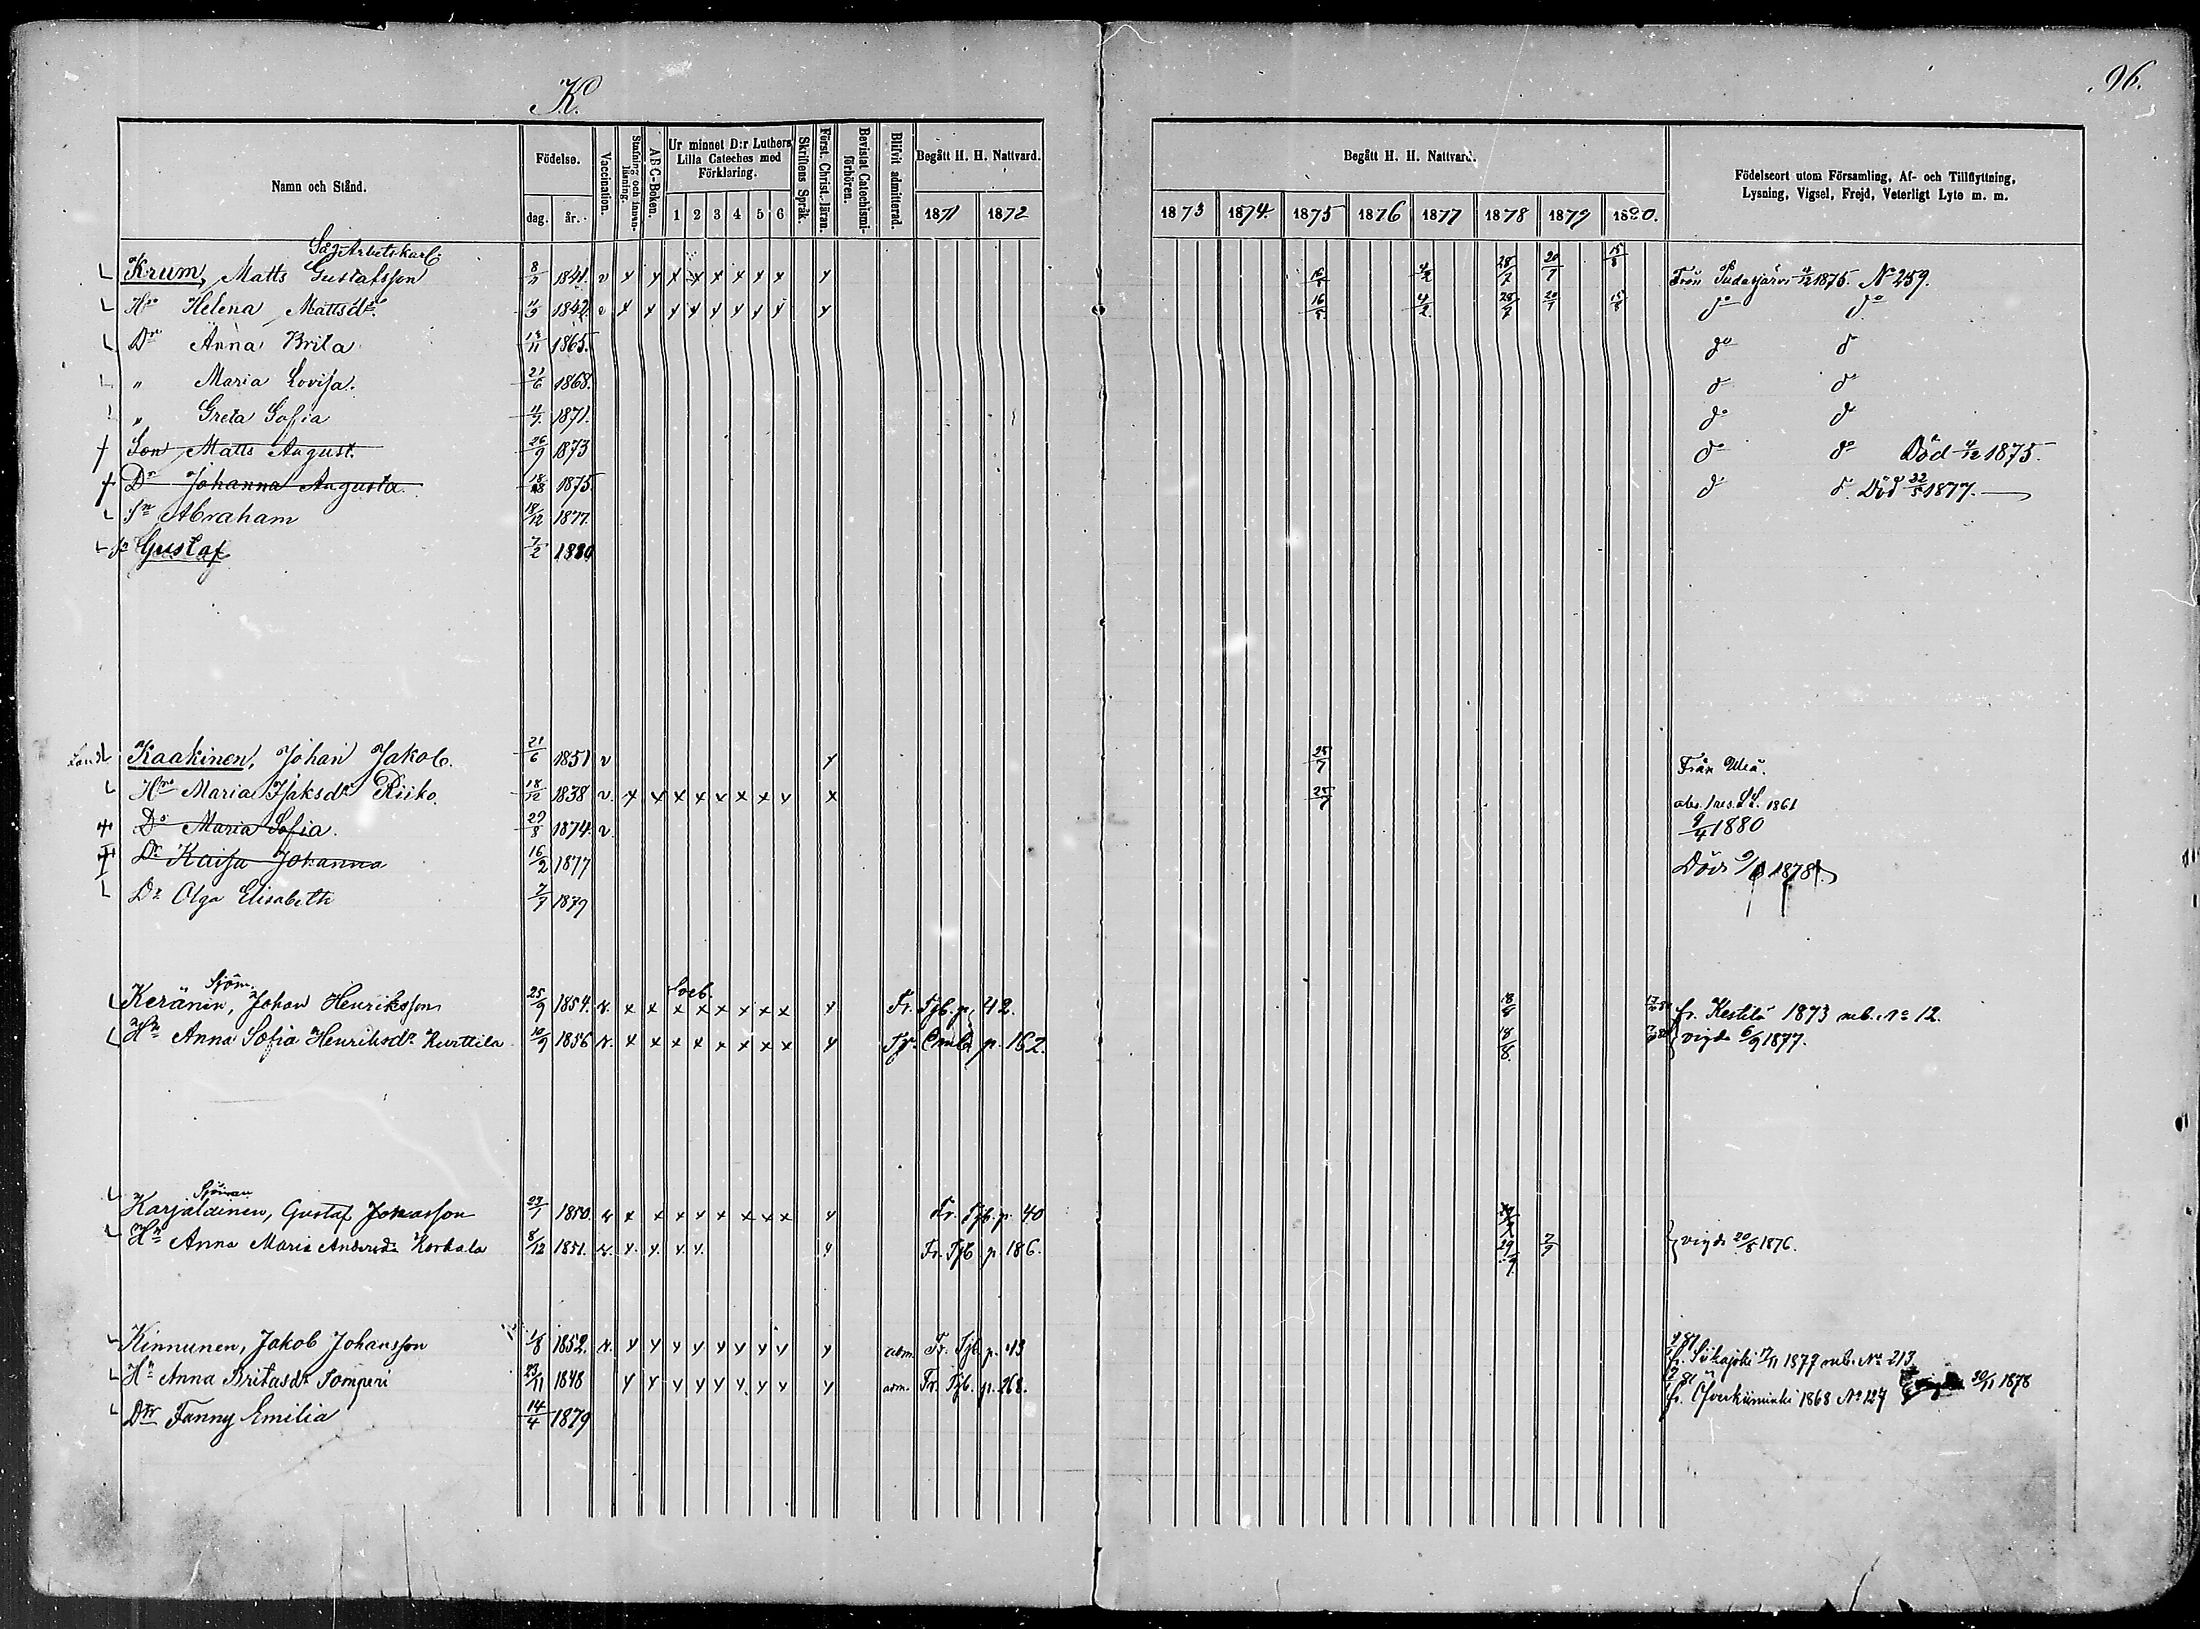 K.
96.
Namn och Stånd.
Födelse.
dag. år.
Vaccination.
Stafning och innanläsning.
A B C-Boken.
Ur minnet D:r Luthers Lilla Cateches med Förklaring.
1 2 3 4 5 6
Skriftens Språk.
Först. Christ. läran.
Bevistat Catechismiförhören.
Blifvit admitterad.
Begått H. H. Nattvard.
1871 1872
Begått H. H. Nattvard.
1873 1874 1875 1876 1877 1878 1879 1880.
Födelseort utom Församling, Af- och Tillflyttning,
Lysning, Vigsel, Frejd, Veterligt Lyte m. m.
Såg Arbetskarl.
Krum, Matts Gustafsson 1841. v x x x x x x x x x 16/5 4/2 28/7 20/7 15/8 Från Pudasjärvi 1875. No 259.
Hu Helena Mattsdr. 1842. v x x x x x x x x x 16/5 4/2 28/7 20/7 15/8 do do
Dr Anna Brita 1865. do do
" Maria Lovisa. 21/6 1868. do do
" Greta Sofia 1871. do do
Son Matts August. 26/9 1873 do do Död 1875.
Dr Johanna Augusta. 1875. do do Död 22/5 1877.
Sn Abraham 18/12 1877.
Sn Gustaf 7/2 1880
Kaakinen, Johan Jakob. 21/6 1851 v x 25/7 Från Uleå.
Hu Maria Isaksdr Riiko. 18/12 1838 v. x x x x x x x x x 25/7 1861
Dr Maria Sofia. 29/8 1874. v. 9/4 1880
Dr Kaisa Johanna 16/2 1877 Död 1878.
Dr Olga Elisabeth 7/7 1879
Sjöm.
Keränen, Johan Henriksson 25/9 1854. v. x x x x x x x x x Fr. Tjb. p. 42. 18/8 fr. Kestilä 1873 mb. No 12.
Hu Anna Sofia Henriksdr Kurttila 10/9 1856 v. x x x x x x x x x p. 162. 18/8 vigde 6/9 1877.
Sjöman
Karjalainen, Gustaf Jonasson 1850. v x x x x x x x x x Fr. Tjb. p. 40
Hu Anna Maria Andersdr Korkala 8/12 1851. v. x x x x x Fr. Tjb p. 186. 29/9 7/9 vigde 20/8 1876.
Kinnunen, Jakob Johansson 1/8 1852. v. x x x x x x x x x adm. Fr. Tjb p. 43 fr. Siikajoki 1877 mb. No 213
Hu Anna Britasdr Tomperi 23/11 1848 x x x x x x x x x adm. Fr. Tjb. p. 268. fr. Öfverkiiminki 1868 No 127 30/11 1878
Dtr Fanny Emilia 14/4 1879